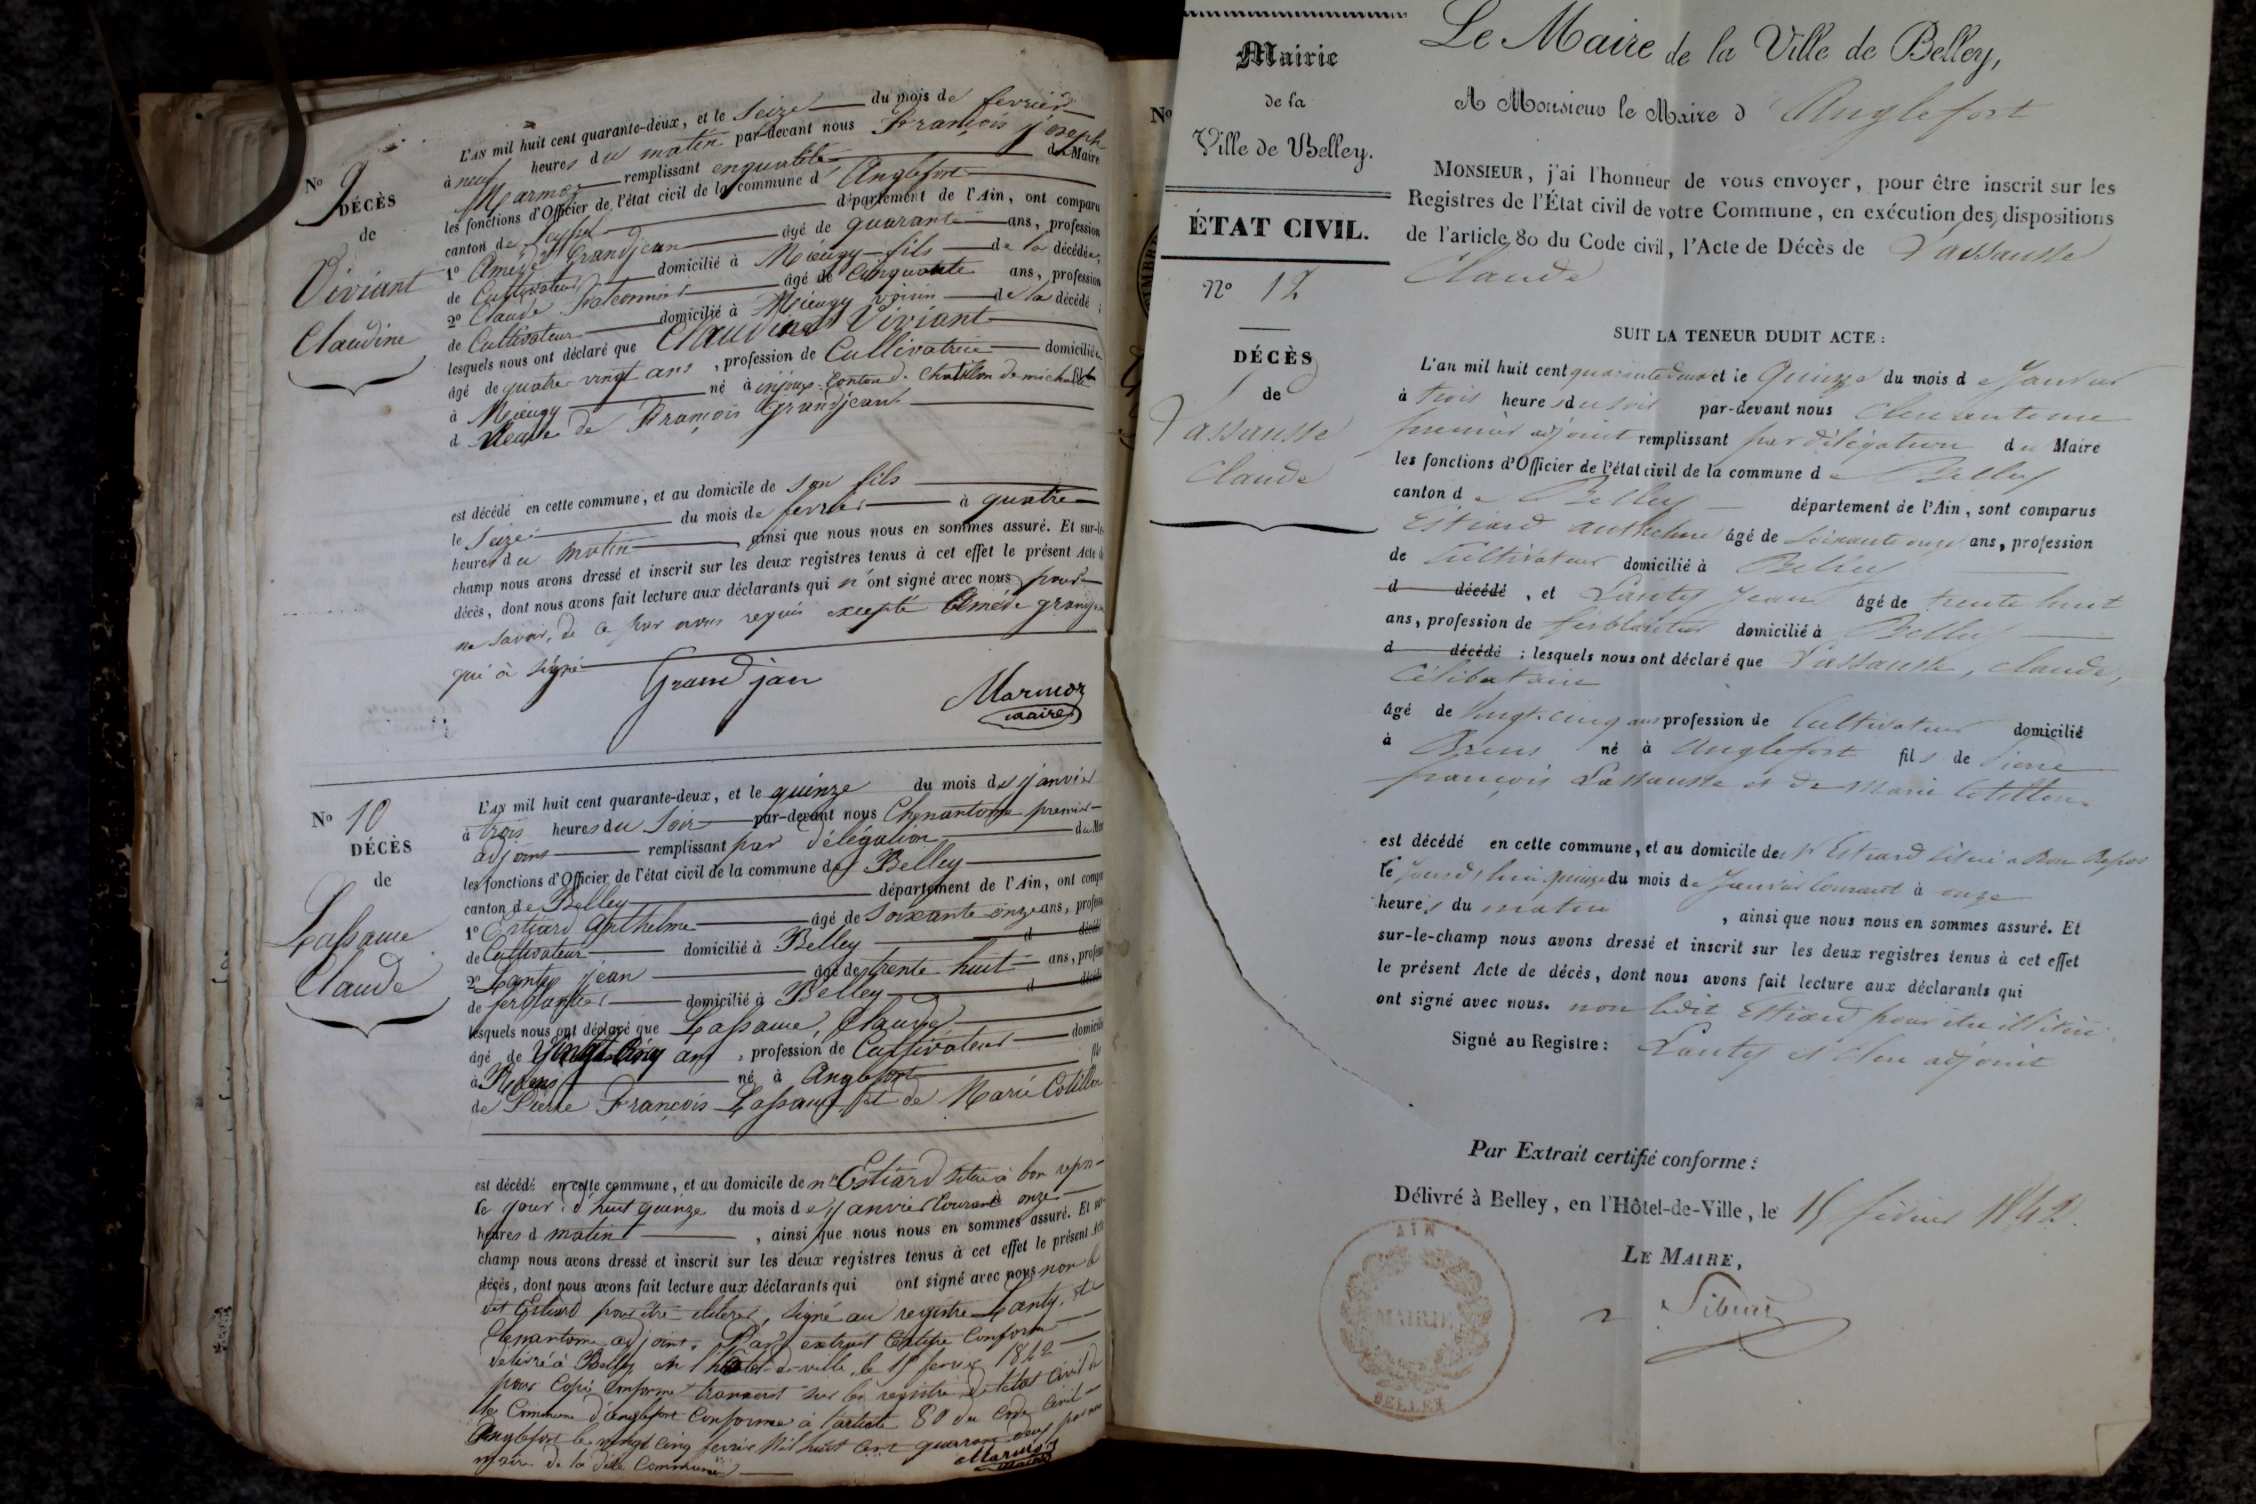 N° 9
DÉCÈS
de
Viviant
Claudine
L'AN mil huit cent quarante-deux, et le Seize du mois de fevrier
à neuf heures du matin par-devant nous François joseph
Marmoz remplissant enqualité de Maire
les fonctions d'Officier de l'état civil de la commune d' Anglefort
canton de Seyssel département de l'Ain, ont comparu
1° Améde Grandjean âgé de quarante ans, profession
de Cultivateur domicilié à Mieugy fils de la décédée,
2° Claude âgé de Cinquante ans, profession
de Cultivateur domicilié à Mieugy voisin de la décédé ;
lesquels nous ont déclaré que Claudine Viviant
âgé de quatre vingt ans, profession de Cultivatrice domiciliée
à Mieugy né à injoux Canton de Chatillon de michaille
d Veuve de François Grandjean
est décédé en cette commune, et au domicile de son fils
le Seize du mois de fevrier à quatre
heures du matin, ainsi que nous nous en sommes assuré. Et sur-le-
champ nous avons dressé et inscrit sur les deux registres tenus à cet effet le présent Acte de
décès, dont nous avons fait lecture aux déclarants qui n'ont signé avec nous pour
ne savoir, de ce par nous requis excepté Améde grandjean
qui à signé
Grandjan
Marmoz
maire
N° 10
DÉCÈS
de
Lassauce
Claude
L'AN mil huit cent quarante-deux, et le quinze du mois de janvier
à trois heures du Soir par-devant nous Chenantome premier
adjoint remplissant par délégation du Maire
les fonctions d'Officier de l'état civil de la commune de Belley
canton de Belley département de l'Ain, ont comparu
1° Estiard Anthelme âgé de Soixante onze ans, profession
de Cultivateur domicilié à Belley d décédé
2° Lanty jean âgé de trente huit ans, profession
de ferblantier domicilié à Belley d décédé
lesquels nous ont déclaré que Lassauce, Claude
âgé de Vingt Cinq ans, profession de Cultivateur domicilié
à Brens né à Anglefort fils
de Pierre François Lassauce et de Marie Cotillon
est décédé en cette commune, et au domicile de Mr Estiard situé à bon repos
le jour d'huit quinze du mois de janvier Courant à onze
heures d matin, ainsi que nous nous en sommes assuré. Et sur-
champ nous avons dressé et inscrit sur les deux registres tenus à cet effet le présent Acte
décès, dont nous avons fait lecture aux déclarants qui ont signé avec nous non le
dit Estiard pour être illiteré, signé au registre Lanty, et
Chenantome adjoint. Par extrait Certifié Conforme
délivré à Belley en l'hotel de-ville le 15 fevrier 1842
pour Copie Conforme transcrit sur les registre de l'état Civil de
la Commune d'anglefort Conforme à l'article 80 du Code Civil
Anglefort le vingt cinq fevrier Mil huit Cent quarante deux par nous
maire de la dite Commune
Marmoz
maire
N°
Mairie
de la
Ville de Belley.
ÉTAT CIVIL.
N° 12
DÉCÈS
de
Lassausse
Claude
Le Maire de la Ville de Belley,
A Monsieur le Maire d'Anglefort
MONSIEUR, j'ai l'honneur de vous envoyer, pour être inscrit sur les
Registres de l'État civil de votre Commune, en exécution des dispositions
de l'article 80 du Code civil, l'Acte de Décès de Lassausse
Claude
SUIT LA TENEUR DUDIT ACTE :
L'an mil huit cent quarante deux et le Quinze du mois de Janvier
à trois heures du soir par-devant nous Chenantome
premier adjoint remplissant par délégation du Maire
les fonctions d'Officier de l'état civil de la commune de Belley
canton de Belley département de l'Ain, sont comparus
Estiard anthelme âgé de Soixante onze ans, profession
de Cultivateur domicilié à Belley
d décédé, et Lanty Jean âgé de trente huit
ans, profession de ferblantier domicilié à Belley
d décédé ; lesquels nous ont déclaré que Lassausse, Claude,
Célibataire
âgé de Vingt-cinq ans profession de Cultivateur domicilié
à Brens né à Anglefort fils de Pierre
françois Lassausse et de Marie Cotillon.
est décédé en cette commune, et au domicile de Sr Estiard situé à Bon Repos
le jourd'hui quinze du mois de Janvier Courant à onze
heures du matin, ainsi que nous nous en sommes assuré. Et
sur-le-champ nous avons dressé et inscrit sur les deux registres tenus à cet effet
le présent Acte de décès, dont nous avons fait lecture aux déclarants qui
ont signé avec nous. non ledit Estiard pour être illitéré.
Signé au Registre : Lanty et Chen adjoint
Par Extrait certifié conforme :
Délivré à Belley, en l'Hôtel-de-Ville, le 15 février 1842.
LE MAIRE,
AIN
MAIRIE
BELLEY